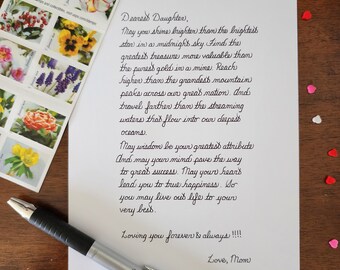 Dearest Daughter,
May you shine brighter than the brightest
star in a midnight sky. Find the
greatest treasure more valuable than
the purest gold in a mine. Reach
higher than the grandest mountain
peaks across our great nation. And
travel farther than the streaming
waters that flow into our deepest
oceans.
May wisdom be your greatest attribute
And may your mind pave the way
to great success. May your heart
lead you to true happiness. So
you may live out life to your
very best.
Loving you forever & always !!!!
Love, Mom